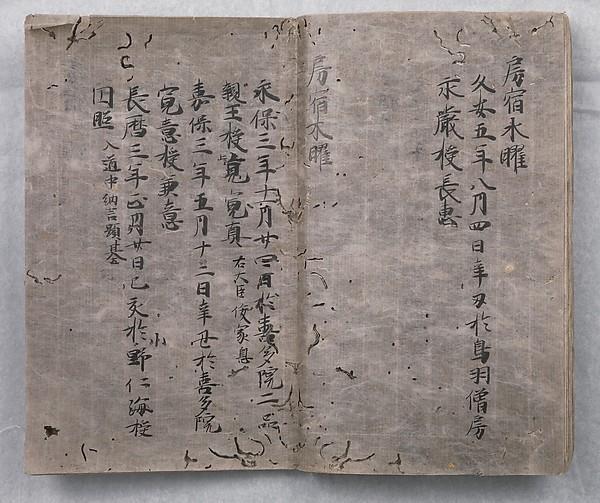 房宿木曜
久安五年八月四日辛丑於鳥羽僧房
永嚴授長惠
房宿木曜
永保三年十月廿四日於喜多院二品
親王授寛意寛真右大臣俊家息
嘉保三年五月十二日辛丑於喜多院
寛意授兼意
長暦三年正月廿日己亥於小野仁海授
因照入道中納言顕基